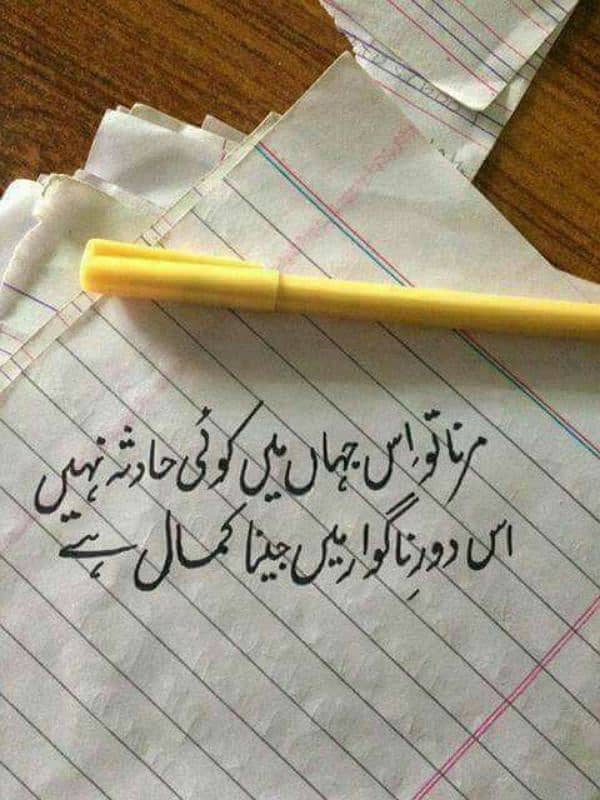 مرنا تو اِس جہاں میں کوئی حادثہ نہیں
اس دورِ ناگوار میں جینا کمال ہے